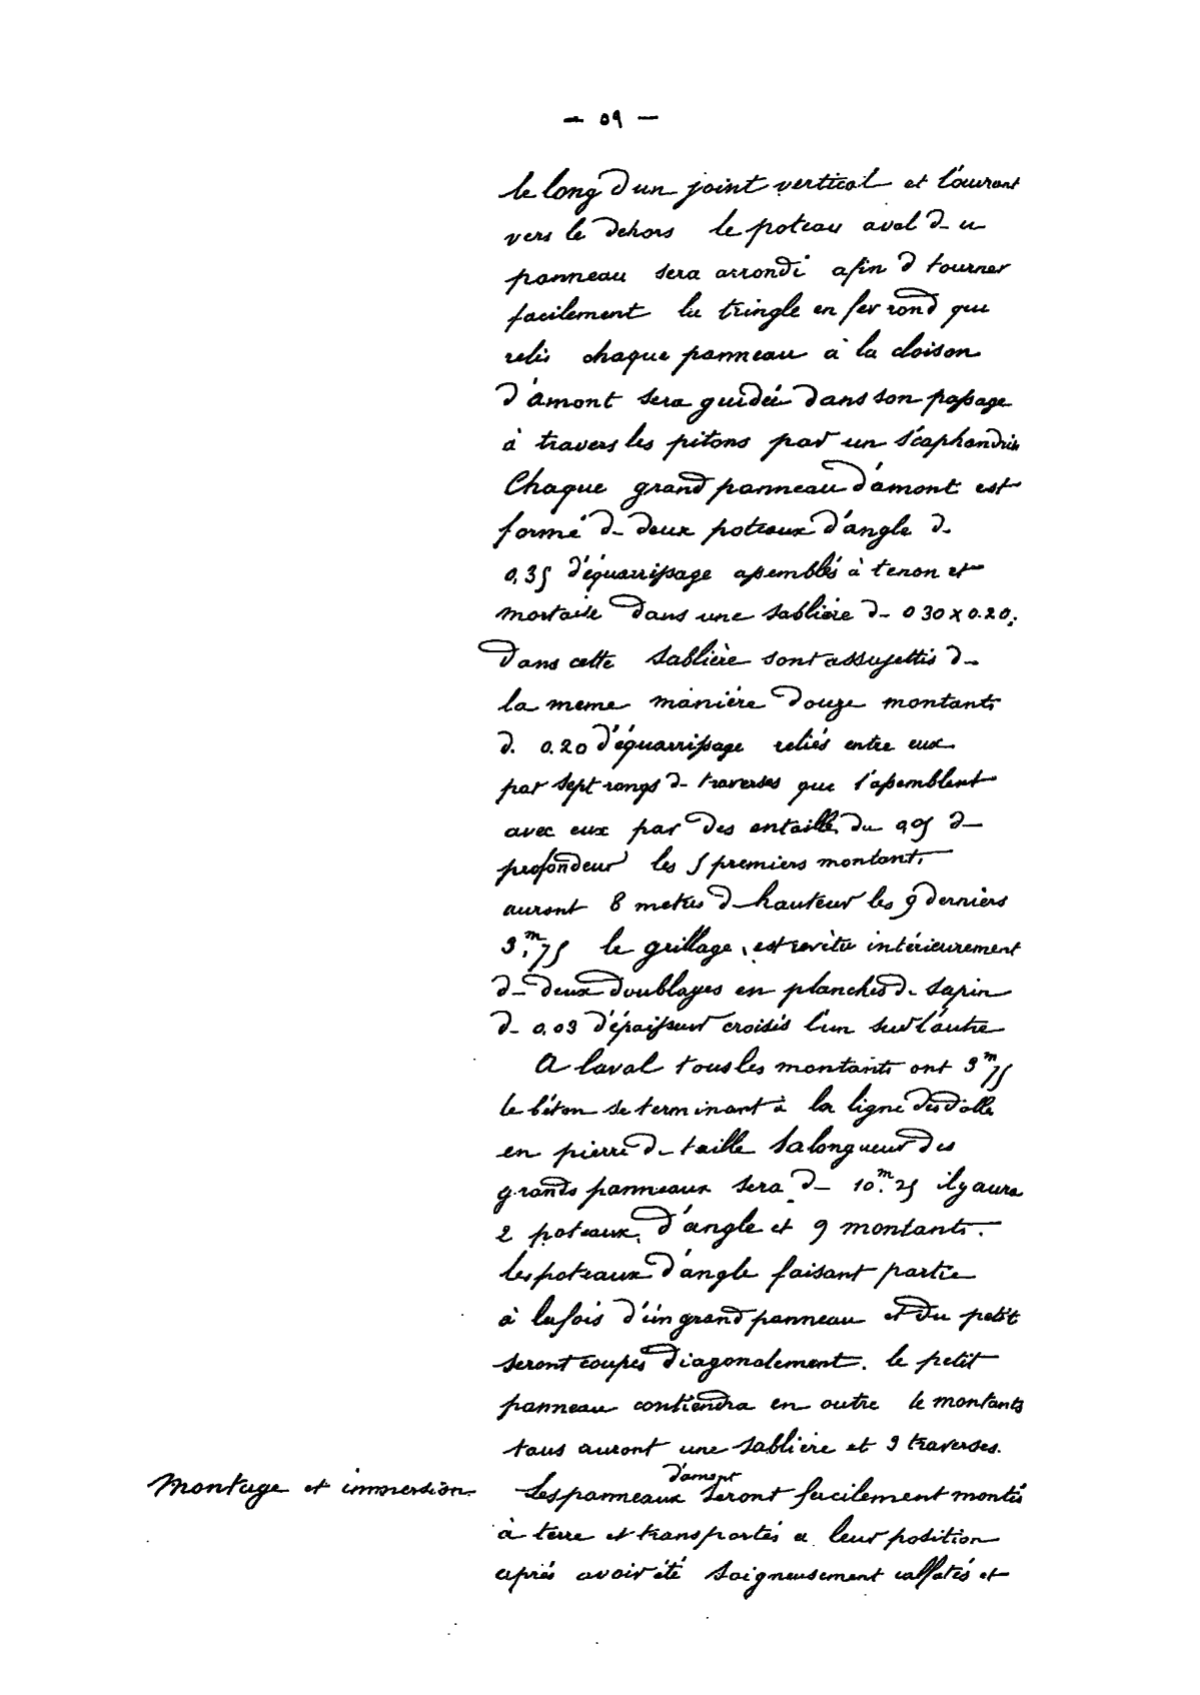 — 59 —
le long d'un joint vertical et l'ouvrant
vers le dehors le poteau aval d- u
panneau sera arrondi afin d tourner
facilement la tringle en fer rond que
relie chaque panneau à la cloison
d'amont sera guidée dans son passage
à travers les pitons par un scaphandrie
Chaque grand panneau d'amont est
formé d- deux poteaux d'angle d-
0,35 d'équarrissage assemblés à tenon et
mortaise dans une sablière d- 0 30 x 0.20.
Dans cette sablière sont assujettis d-
la meme manière douze montants
d. 0.20 d'équarrissage reliés entre eux
par sept rangs d- traverses que s'assemblent
avec eux par des entailles du 0,05 d-
profondeur les 5 premiers montants
auront 8 metres d- hauteur les 9 derniers
3.m75 le grillage est revêtu intérieurement
d- deux doublages en planches d- sapin
d- 0,03 d'épaisseur croisés l'un sur l'autre
A laval tous les montants ont 3m75
le béton se terminant à la ligne des dalle
en pierre d- taille Sa longueur des
grands panneaux sera d- 10.m25 il y aura
2 poteaux d'angle et 9 montants.
les poteaux d'angle faisant partie
à la fois d'un grand panneau et du petit
seront coupés diagonalement. le petit
panneau contiendra en outre le montants
tous auront une sablière et 9 traverses.
Montage et immersion. Les panneaux d'amont seront facilement montés
à terre et transportés a leur position
après avoir été soigneusement calfatés et